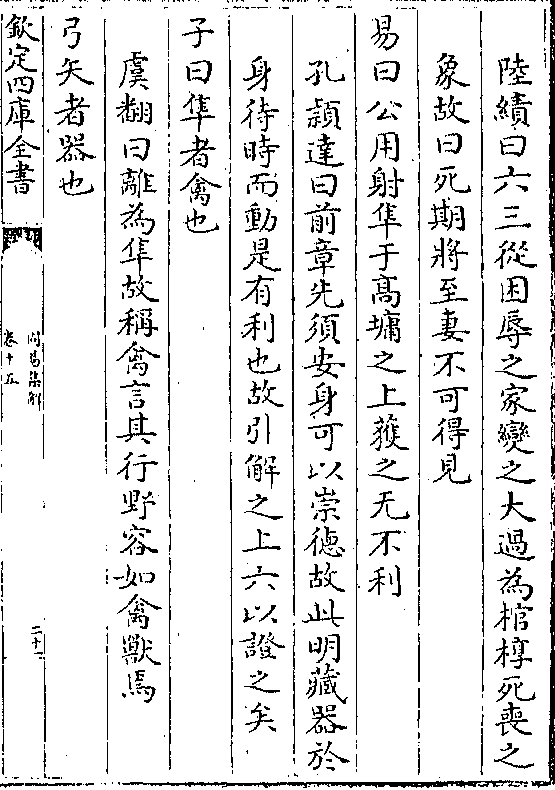 陸績曰六三從困辱之家變之大過為棺椁死喪之
象故曰死期將至妻不可得見
易曰公用射隼于髙墉之上獲之无不利
孔頴達曰前章先須安身可以崇德故此明藏器於
身待時而動是有利也故引解之上六以證之矣
子曰隼者禽也
虞翻曰離為隼故稱禽言其行野容如禽獸焉
弓矢者器也
欽定四庫全書
周易集解
卷十五
二十一